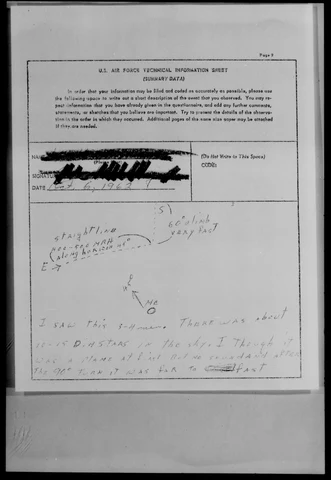 Page 5
U.S. AIR FORCE TECHNICAL INFORMATION SHEET
(SUMMARY DATA)
In order that your information may be filed and coded as accurately as possible, please use
the following space to write out a short description of the event that you observed. You may re-
peat information that you have already given in the questionnaire, and add any further comments,
statements, or sketches that you believe are important. Try to present the details of the observa-
tion in the order in which they occurred. Additional pages of the same size paper may be attached
if they are needed.
NAME
SIGNATURE
DATE Oct. 6, 1962
(Do Not Write in This Space)
CODE:
S
straight line
MPH
along horizon
E
climb
very fast
N
ME
I saw this. There was about
Dim STARS in the sky. I Though it
was a plane at first But no sound and after
The 90° Turn it was far to fast